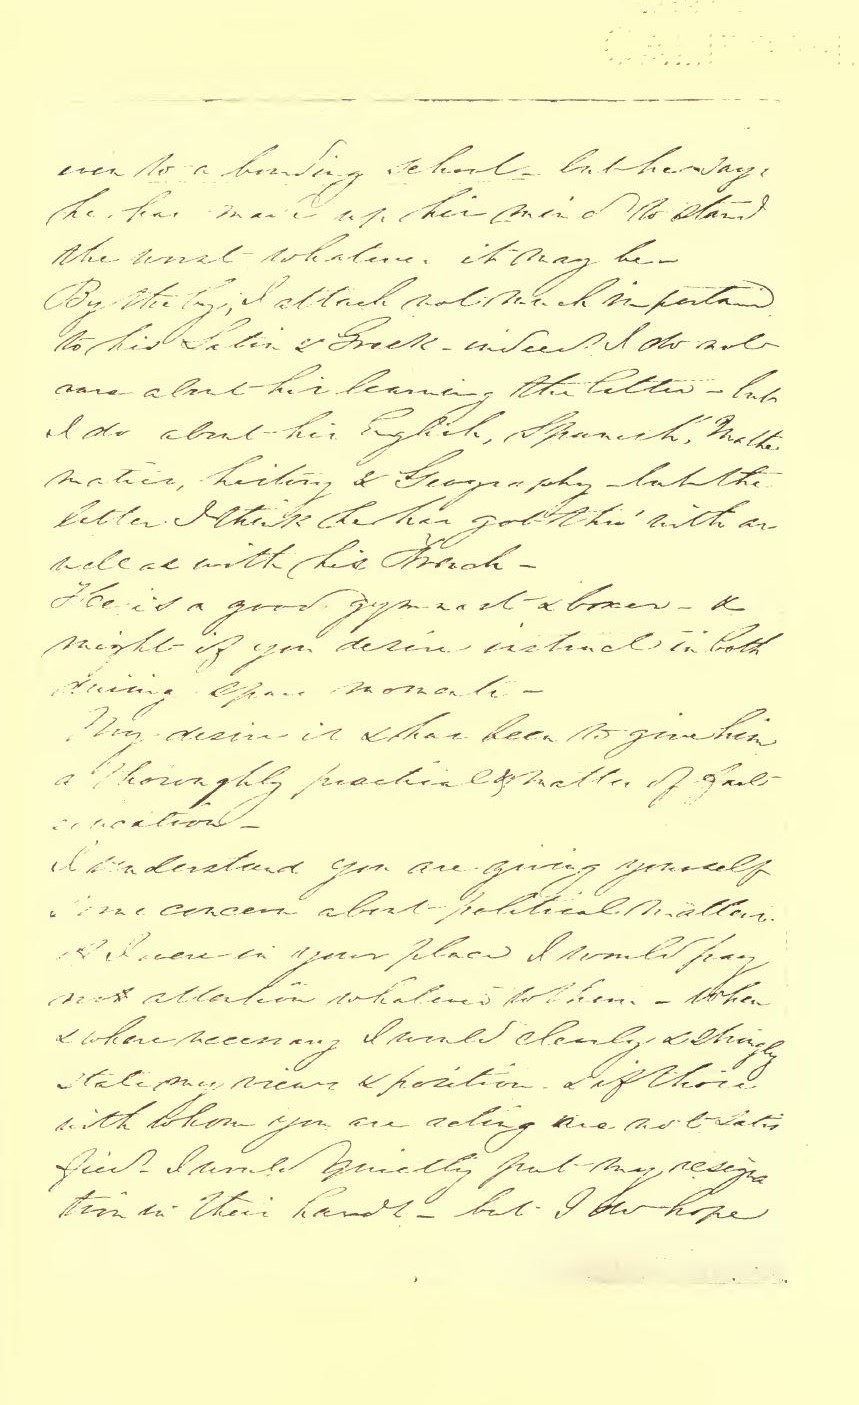 even to a boarding school - but he says
he has made up his mind to stand
the worst whatever it may be -
By the by, I attach not much importance
to his Latin & Greek - indeed I do not
care about his learning the latter - but
I do about his English, Spanish, Mathe
matics, history & Geography - but the
latter I think he has got thro' with as
well as with his French -
He is a good gymnast & boxer - &
might if you desire instruct in both
during spare moments -
My desire is & has been to give him
a thoroughly practical & matter of fact
education -
I understand you are giving yourself
some concern about political matters.
If I were in your place I would pay
not attention whatever to them - When
& where necessary I would clearly & strongly
state my views & position - & if those
with whom you are acting are not satis
fied - I would quietly put my resigna
tion in their hands - but I do hope